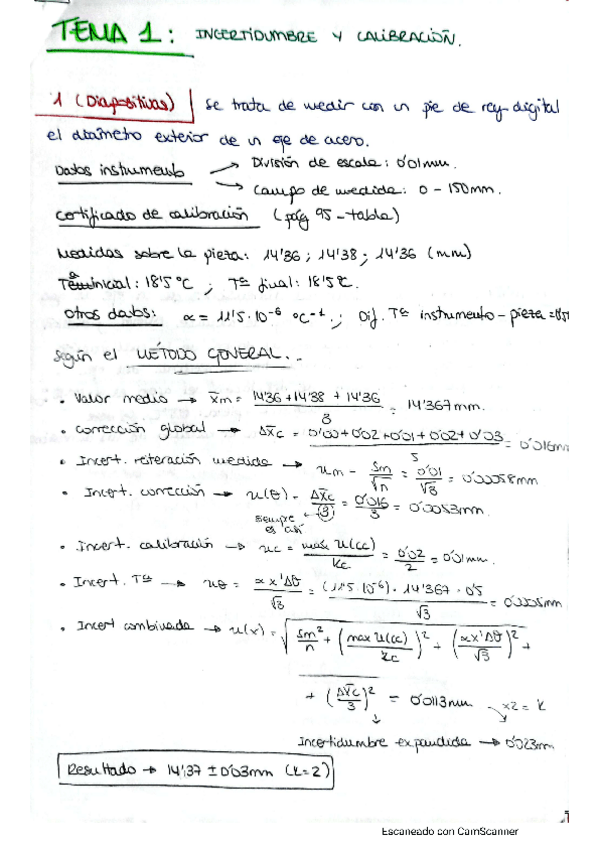 TEMA 1: INCERTIDUMBRE Y CALIBRACIÓN.
1 (Diapositivas) Se trata de medir con un pie de rey digital
el diámetro exterior de un eje de acero.
Datos instrumento → División de escala: 0'01mm.
→ Campo de medida: 0 - 150mm.
Certificado de calibración (pág 95 - tabla)
Medidas sobre la pieza: 14'36 ; 14'38 ; 14'36 (mm)
Tª inicial: 18'5 °C ; Tª final: 18'5 °C.
Otros datos: α = 11'5·10⁻⁶ °C⁻¹ ; Dif. Tª instrumento - pieza =
Según el MÉTODO GENERAL...
• Valor medio → x̄m = (14'36 + 14'38 + 14'36) / 3 = 14'367mm.
• Corrección global → Δx̄c = (0'00 + 0'02 + 0'01 + 0'02 + 0'03) / 5 = 0'016mm
• Incert. reiteración medida → um - sm/√n = 0'01/√3 = 0'00058mm
• Incert. corrección → u(θ) - Δx̄c/(3) = 0'016/3 = 0'0053mm.
siempre es así
• Incert. calibración → uc = max U(cc) / kc = 0'02/2 = 0'01mm.
• Incert. Tª → uθ = α x' Δθ / √3 = (11'5·10⁻⁶) · 14'367 · 0'5 / √3 = mm.
• Incert combinada → u(x) = √ sm²/n + (max U(cc) / kc)² + (α x' Δθ / √3)² +
+ (Δx̄c/3)² = 0'0113mm x2 = k
Incertidumbre expandida → 0'023mm
Resultado → 14'37 ± 0'03mm (k=2)
Escaneado con CamScanner